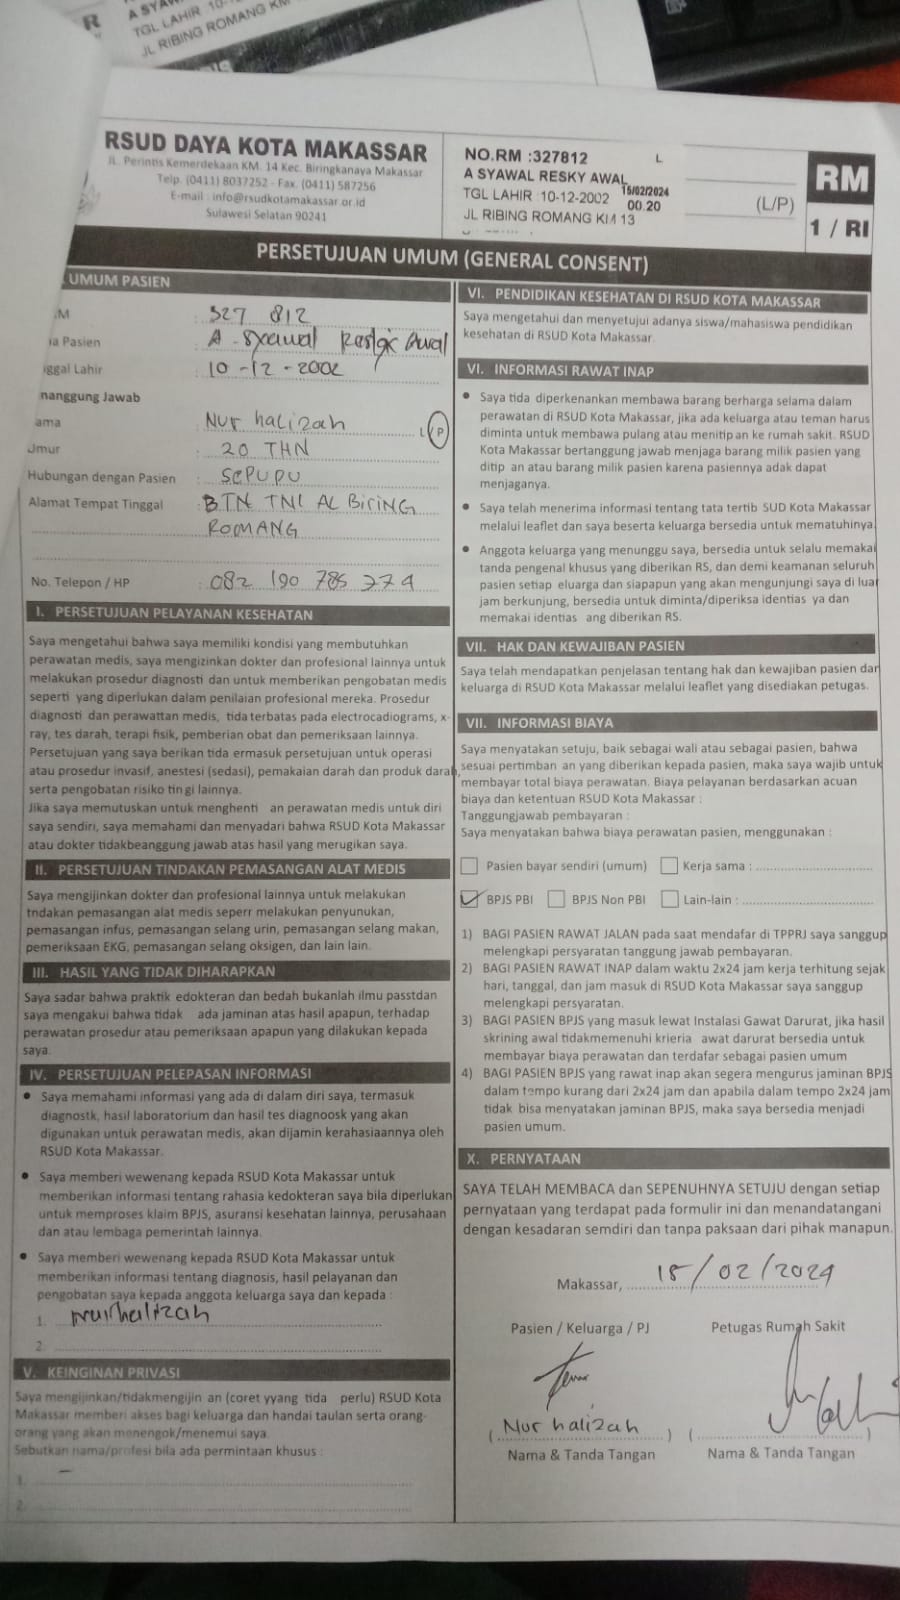 A SYAW
TGL LAHIR 10-12
JL RIBING ROMANG KM
RSUD DAYA KOTA MAKASSAR
JL. Perintis Kemerdekaan KM. 14 Kec. Biringkanaya Makassar
Telp. (0411) 8037252 - Fax. (0411) 587256
E-mail : info@rsudkotamakassar.or.id
Sulawesi Selatan 90241
NO.RM :327812 L
A SYAWAL RESKY AWAL
TGL LAHIR :10-12-2002 15/02/2024
00.20
JL RIBING ROMANG KM 13
(L/P)
RM
1 / RI
PERSETUJUAN UMUM (GENERAL CONSENT)
UMUM PASIEN
.M : 327 812
a Pasien : A. Syawal Resky Awal
ggal Lahir : 10-12-2002
nanggung Jawab
ama : Nur halizah L/P
Umur : 20 THN
Hubungan dengan Pasien : SEPUPU
Alamat Tempat Tinggal : BTN TNI AL BIRING
ROMANG
No. Telepon / HP : 082 190 785 774
I. PERSETUJUAN PELAYANAN KESEHATAN
Saya mengetahui bahwa saya memiliki kondisi yang membutuhkan
perawatan medis, saya mengizinkan dokter dan profesional lainnya untuk
melakukan prosedur diagnosti dan untuk memberikan pengobatan medis
seperti yang diperlukan dalam penilaian profesional mereka. Prosedur
diagnosti dan perawattan medis, tida terbatas pada electrocadiograms, x-
ray, tes darah, terapi fisik, pemberian obat dan pemeriksaan lainnya.
Persetujuan yang saya berikan tida ermasuk persetujuan untuk operasi
atau prosedur invasif, anestesi (sedasi), pemakaian darah dan produk darah,
serta pengobatan risiko tin gi lainnya.
Jika saya memutuskan untuk menghenti an perawatan medis untuk diri
saya sendiri, saya memahami dan menyadari bahwa RSUD Kota Makassar
atau dokter tidakbeanggung jawab atas hasil yang merugikan saya.
II. PERSETUJUAN TINDAKAN PEMASANGAN ALAT MEDIS
Saya mengijinkan dokter dan profesional lainnya untuk melakukan
tndakan pemasangan alat medis seperr melakukan penyunukan,
pemasangan infus, pemasangan selang urin, pemasangan selang makan,
pemeriksaan EKG, pemasangan selang oksigen, dan lain lain.
III. HASIL YANG TIDAK DIHARAPKAN
Saya sadar bahwa praktik edokteran dan bedah bukanlah ilmu passtdan
saya mengakui bahwa tidak ada jaminan atas hasil apapun, terhadap
perawatan prosedur atau pemeriksaan apapun yang dilakukan kepada
saya.
IV. PERSETUJUAN PELEPASAN INFORMASI
• Saya memahami informasi yang ada di dalam diri saya, termasuk
diagnostk, hasil laboratorium dan hasil tes diagnoosk yang akan
digunakan untuk perawatan medis, akan dijamin kerahasiaannya oleh
RSUD Kota Makassar.
• Saya memberi wewenang kepada RSUD Kota Makassar untuk
memberikan informasi tentang rahasia kedokteran saya bila diperlukan
untuk memproses klaim BPJS, asuransi kesehatan lainnya, perusahaan
dan atau lembaga pemerintah lainnya.
• Saya memberi wewenang kepada RSUD Kota Makassar untuk
memberikan informasi tentang diagnosis, hasil pelayanan dan
pengobatan saya kepada anggota keluarga saya dan kepada :
1. nurhalizah
2.
V. KEINGINAN PRIVASI
Saya mengijinkan/tidakmengijin an (coret yyang tida perlu) RSUD Kota
Makassar memberi akses bagi keluarga dan handai taulan serta orang-
orang yang akan menengok/menemui saya.
Sebutkan nama/profesi bila ada permintaan khusus :
1. –
2.
VI. PENDIDIKAN KESEHATAN DI RSUD KOTA MAKASSAR
Saya mengetahui dan menyetujui adanya siswa/mahasiswa pendidikan
kesehatan di RSUD Kota Makassar.
VI. INFORMASI RAWAT INAP
• Saya tida diperkenankan membawa barang berharga selama dalam
perawatan di RSUD Kota Makassar, jika ada keluarga atau teman harus
diminta untuk membawa pulang atau menitip an ke rumah sakit. RSUD
Kota Makassar bertanggung jawab menjaga barang milik pasien yang
ditip an atau barang milik pasien karena pasiennya adak dapat
menjaganya.
• Saya telah menerima informasi tentang tata tertib SUD Kota Makassar
melalui leaflet dan saya beserta keluarga bersedia untuk mematuhinya.
• Anggota keluarga yang menunggu saya, bersedia untuk selalu memakai
tanda pengenal khusus yang diberikan RS, dan demi keamanan seluruh
pasien setiap eluarga dan siapapun yang akan mengunjungi saya di luar
jam berkunjung, bersedia untuk diminta/diperiksa identias ya dan
memakai identias ang diberikan RS.
VII. HAK DAN KEWAJIBAN PASIEN
Saya telah mendapatkan penjelasan tentang hak dan kewajiban pasien dan
keluarga di RSUD Kota Makassar melalui leaflet yang disediakan petugas.
VII. INFORMASI BIAYA
Saya menyatakan setuju, baik sebagai wali atau sebagai pasien, bahwa
sesuai pertimban an yang diberikan kepada pasien, maka saya wajib untuk
membayar total biaya perawatan. Biaya pelayanan berdasarkan acuan
biaya dan ketentuan RSUD Kota Makassar :
Tanggungjawab pembayaran :
Saya menyatakan bahwa biaya perawatan pasien, menggunakan :
Pasien bayar sendiri (umum) Kerja sama :
BPJS PBI BPJS Non PBI Lain-lain :
1) BAGI PASIEN RAWAT JALAN pada saat mendafar di TPPRJ saya sanggup
melengkapi persyaratan tanggung jawab pembayaran.
2) BAGI PASIEN RAWAT INAP dalam waktu 2x24 jam kerja terhitung sejak
hari, tanggal, dan jam masuk di RSUD Kota Makassar saya sanggup
melengkapi persyaratan.
3) BAGI PASIEN BPJS yang masuk lewat Instalasi Gawat Darurat, jika hasil
skrining awal tidakmemenuhi krieria awat darurat bersedia untuk
membayar biaya perawatan dan terdafar sebagai pasien umum
4) BAGI PASIEN BPJS yang rawat inap akan segera mengurus jaminan BPJS
dalam tempo kurang dari 2x24 jam dan apabila dalam tempo 2x24 jam
tidak bisa menyatakan jaminan BPJS, maka saya bersedia menjadi
pasien umum.
X. PERNYATAAN
SAYA TELAH MEMBACA dan SEPENUHNYA SETUJU dengan setiap
pernyataan yang terdapat pada formulir ini dan menandatangani
dengan kesadaran semdiri dan tanpa paksaan dari pihak manapun.
Makassar, 15/02/2024
Pasien / Keluarga / PJ Petugas Rumah Sakit
( Nur halizah ) ( )
Nama & Tanda Tangan Nama & Tanda Tangan